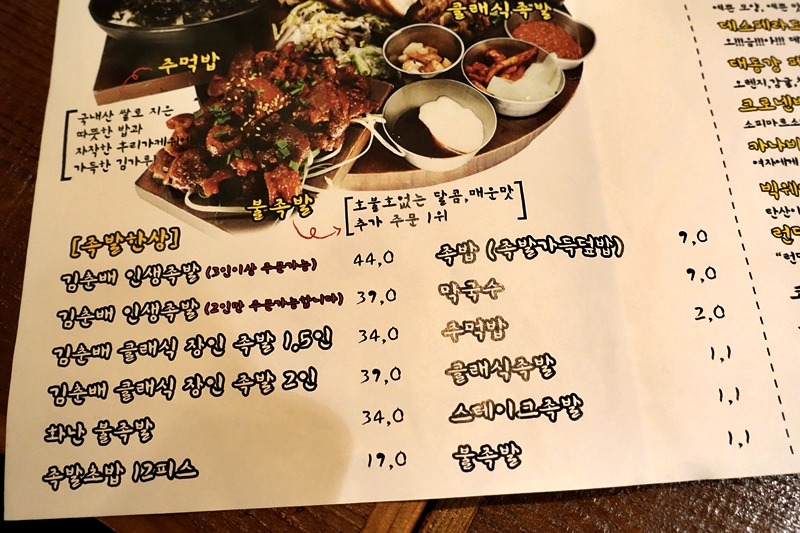 클래식족발
주먹밥
국내산 쌀로 지은
따뜻한 밥과
자작한 후리가케
가득한 김가루
불족발
호불호없는 달콤,매운맛
추가 주문 1위
[족발한상]
김춘배 인생족발 (3인이상 주문가능) 44,0
김춘배 인생족발 (2인만 주문가능합니다) 39,0
김춘배 클래식 장인 족발 1,5인 34,0
김춘배 클래식 장인 족발 2인 39,0
화난 불족발 34,0
족발초밥 12피스 19,0
족밥 (족발가득덮밥) 9,0
막국수 9,0
주먹밥 2,0
클래식족발 1,1
스테이크족발 1,1
불족발 1,1
데스페라도
대동강
오렌지,감귤,
크로넨
소피마르소
여자에게
탄산이